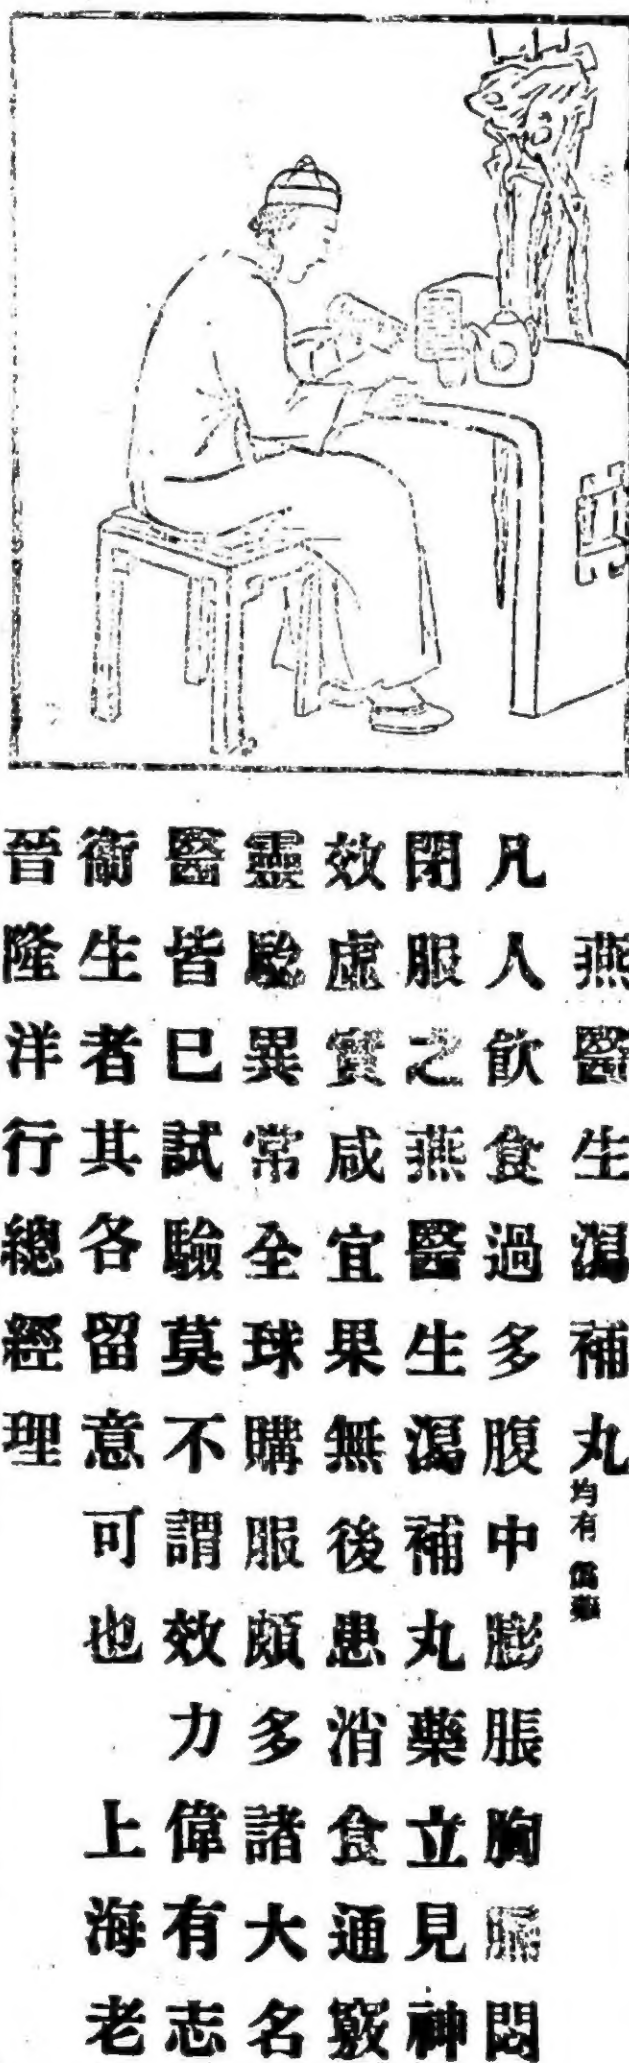 燕醫生瀉補丸 均有
凡人飲食過多腹中膨脹胸膈悶
閉服之燕醫生瀉補丸藥立見神
效虛實咸宜果無後患消食通竅
靈驗異常全球購服頗多諸大名
醫皆已試驗莫不謂效力偉有志
衛生者其各留意可也 上海老
晉隆洋行總經理